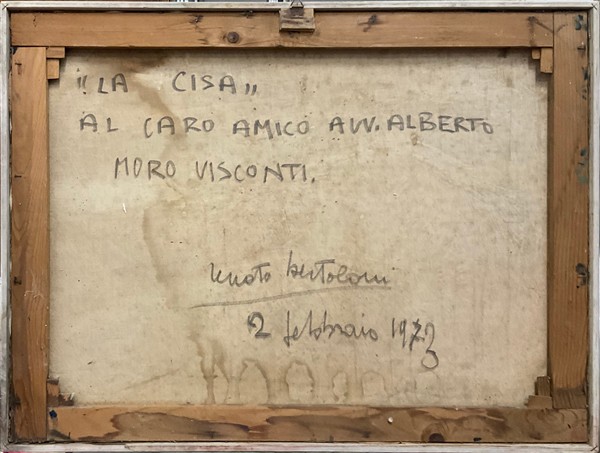 "LA CISA"
AL CARO AMICO AVV. ALBERTO
MORO VISCONTI.
Renato Bertoloni
2 febbraio 1973